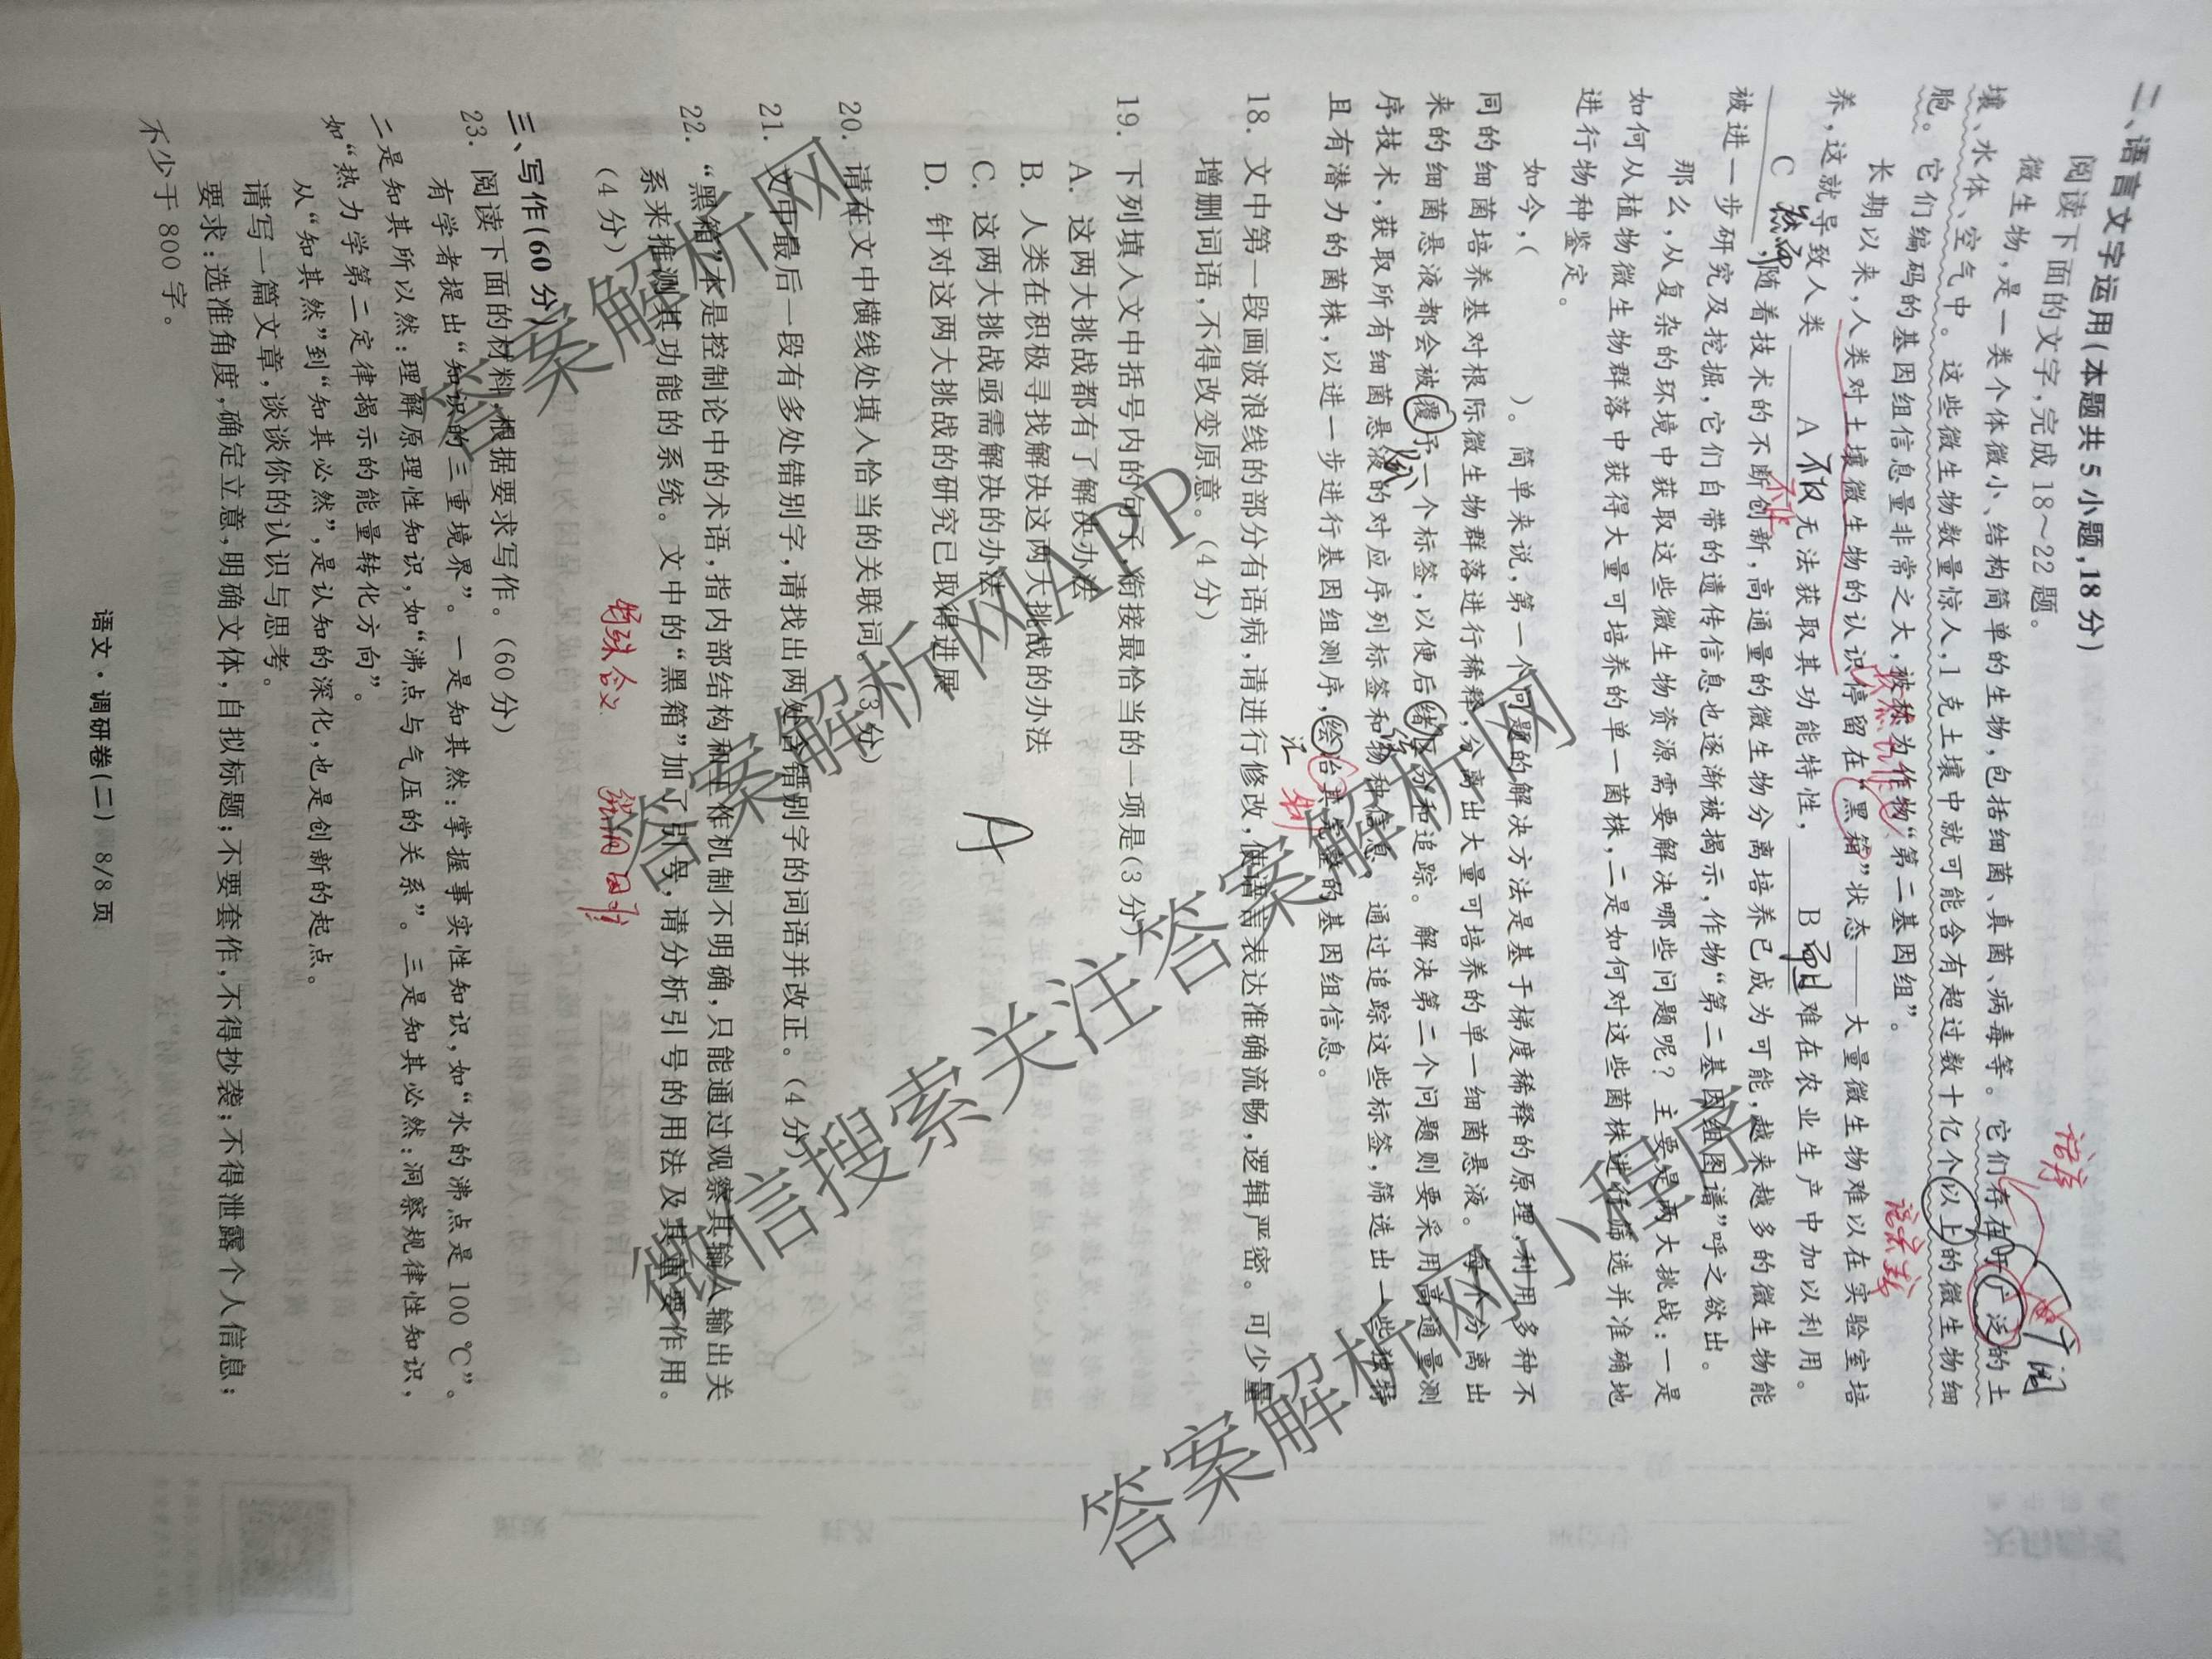 二、语言文字运用(本题共5小题,18分)
阅读下面的文字,完成18~22题。
微生物,是一类个体微小、结构简单的生物,包括细菌、真菌、病毒等。它们存在于广泛的土
壤、水体、空气中。这些微生物数量惊人,1克土壤中就可能含有超过数十亿个以上的微生物细
胞。它们编码的基因组信息量非常之大,被称为作物“第二基因组”。
长期以来,人类对土壤微生物的认识停留在“黑箱”状态——大量微生物难以在实验室培
养,这就导致人类 A 不仅 无法获取其功能特性, B 而且 难在农业生产中加以利用。
C ,随着技术的不断创新,高通量的微生物分离培养已成为可能,越来越多的微生物能
被进一步研究及挖掘,它们自带的遗传信息也逐渐被揭示,作物“第二基因组图谱”呼之欲出。
那么,从复杂的环境中获取这些微生物资源需要解决哪些问题呢?主要是两大挑战:一是
如何从植物微生物群落中获得大量可培养的单一菌株,二是如何对这些菌株进行筛选并准确地
进行物种鉴定。
如今,( )。简单来说,第一个问题的解决方法是基于梯度稀释的原理,利用多种不
同的细菌培养基对根际微生物群落进行稀释,分离出大量可培养的单一细菌悬液。每个分离出
来的细菌悬液都会被覆予一个标签,以便后绪区分和追踪。解决第二个问题则要采用高通量测
序技术,获取所有细菌悬液的对应序列标签和物种信息。通过追踪这些标签,筛选出一些独特
且有潜力的菌株,以进一步进行基因组测序,绘治其完整的基因组信息。
18. 文中第一段画波浪线的部分有语病,请进行修改,使语言表达准确流畅,逻辑严密。可少量
增删词语,不得改变原意。(4分)
19. 下列填入文中括号内的句子,衔接最恰当的一项是(3分)
A. 这两大挑战都有了解决办法
B. 人类在积极寻找解决这两大挑战的办法
C. 这两大挑战亟需解决的办法
D. 针对这两大挑战的研究已取得进展
A
20. 请在文中横线处填入恰当的关联词。(3分)
21. 文中最后一段有多处错别字,请找出两处含错别字的词语并改正。(4分)
22. “黑箱”本是控制论中的术语,指内部结构和工作机制不明确,只能通过观察其输入输出关
系来推测其功能的系统。文中的“黑箱”加了引号,请分析引号的用法及其重要作用。
(4分)
特殊含义
三、写作(60分)
23. 阅读下面的材料,根据要求写作。(60分)
有学者提出“知识的三重境界”。一是知其然:掌握事实性知识,如“水的沸点是100 ℃”。
二是知其所以然:理解原理性知识,如“沸点与气压的关系”。三是知其必然:洞察规律性知识,
如“热力学第二定律揭示的能量转化方向”。
从“知其然”到“知其必然”,是认知的深化,也是创新的起点。
请写一篇文章,谈谈你的认识与思考。
要求:选准角度,确定立意,明确文体,自拟标题;不要套作,不得抄袭;不得泄露个人信息;
不少于800字。
语文·调研卷(二) 8/8页
答案解析网
微信搜索关注答案解析网
答案解析网APP
答案解析网小程序